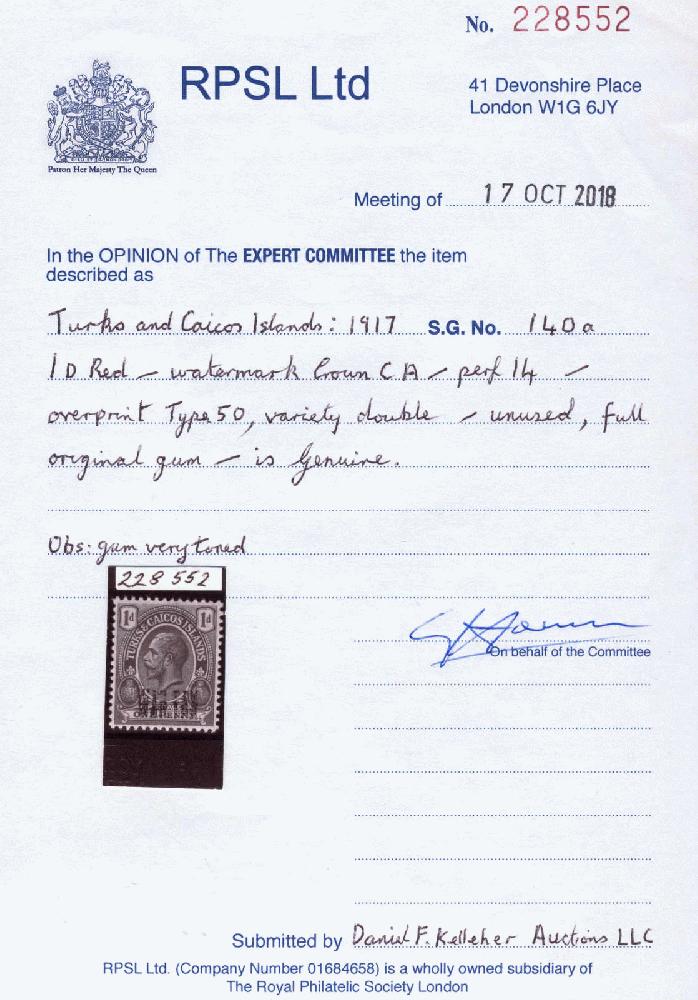 No. 228552
RPSL Ltd
41 Devonshire Place
London W1G 6JY
Patron Her Majesty The Queen
Meeting of 17 OCT 2018
In the OPINION of The EXPERT COMMITTEE the item
described as
Turks and Caicos Islands: 1917 S.G. No. 140a
1D Red – watermark Crown CA – perf 14 –
overprint Type 50, variety double – unused, full
original gum – is Genuine.
Obs: gum very toned
228 552
1d 1d
TURKS & CAICOS ISLANDS
On behalf of the Committee
Submitted by Daniel F. Kelleher Auctions LLC
RPSL Ltd. (Company Number 01684658) is a wholly owned subsidiary of
The Royal Philatelic Society London